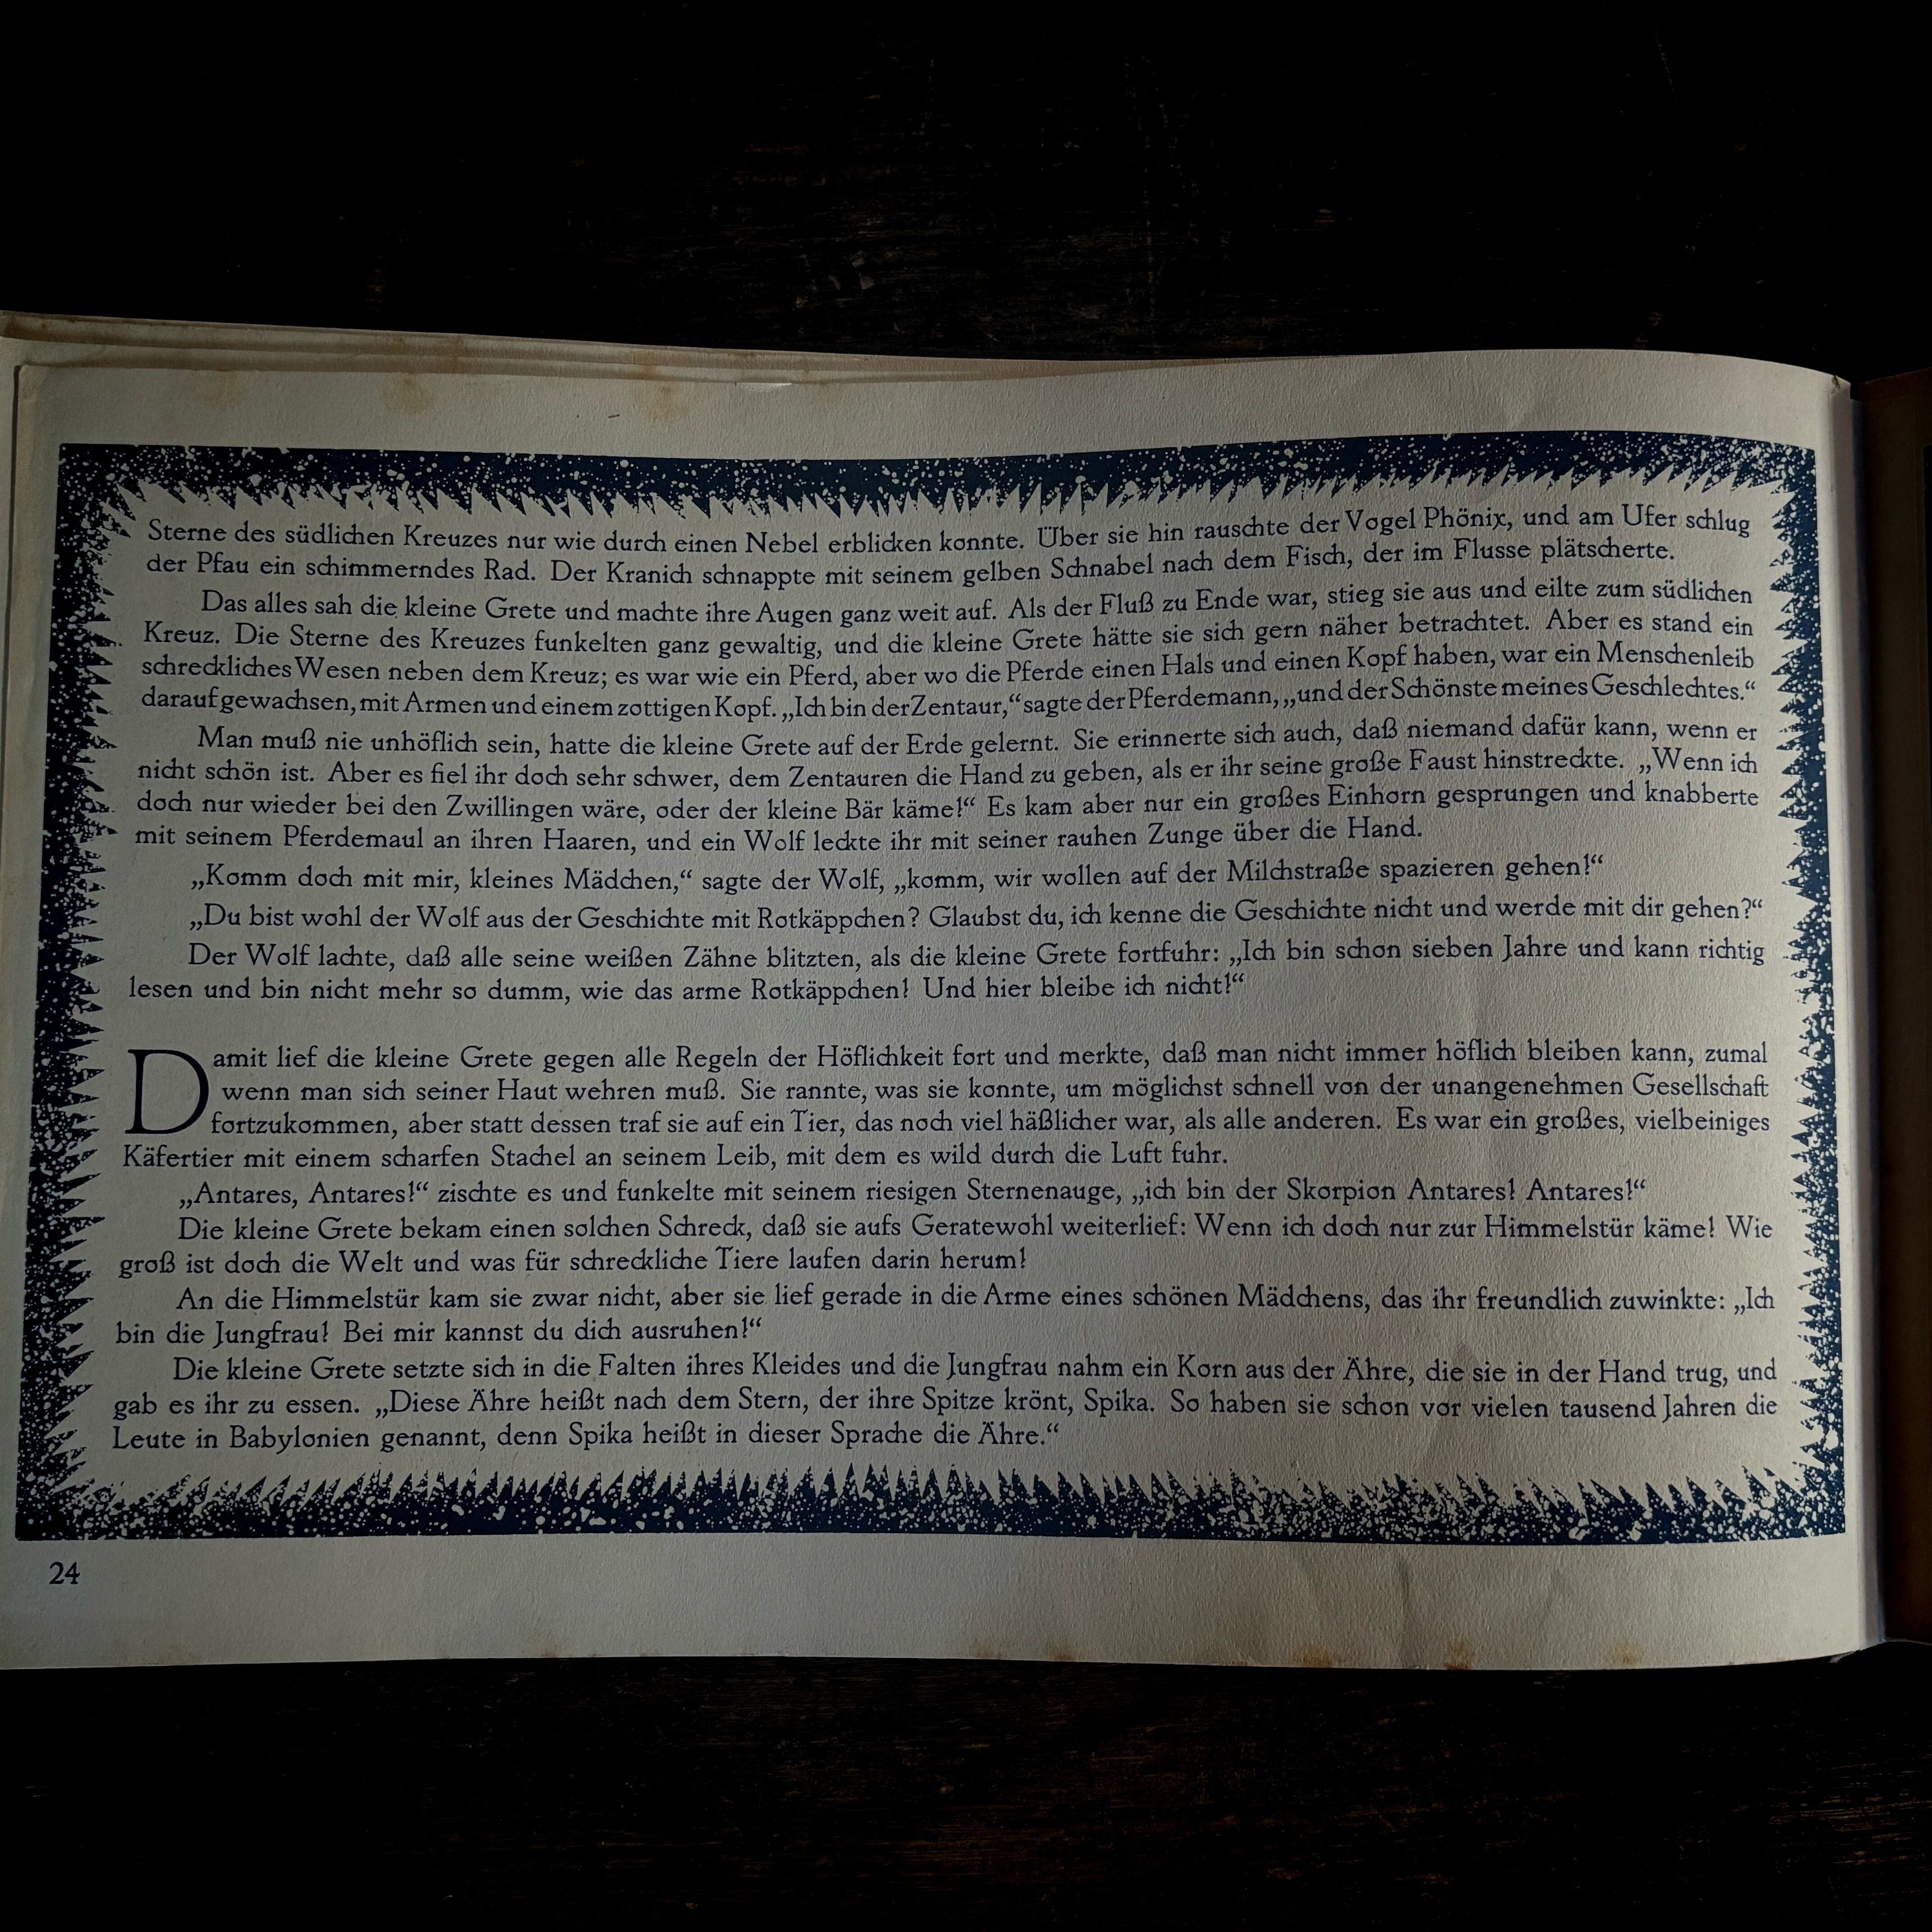 Sterne des südlichen Kreuzes nur wie durch einen Nebel erblicken konnte. Über sie hin rauschte der Vogel Phönix, und am Ufer schlug
der Pfau ein schimmerndes Rad. Der Kranich schnappte mit seinem gelben Schnabel nach dem Fisch, der im Flusse plätscherte.
Das alles sah die kleine Grete und machte ihre Augen ganz weit auf. Als der Fluß zu Ende war, stieg sie aus und eilte zum südlichen
Kreuz. Die Sterne des Kreuzes funkelten ganz gewaltig, und die kleine Grete hätte sie sich gern näher betrachtet. Aber es stand ein
schreckliches Wesen neben dem Kreuz; es war wie ein Pferd, aber wo die Pferde einen Hals und einen Kopf haben, war ein Menschenleib
darauf gewachsen, mit Armen und einem zottigen Kopf. „Ich bin der Zentaur,“ sagte der Pferdemann, „und der Schönste meines Geschlechtes.“
Man muß nie unhöflich sein, hatte die kleine Grete auf der Erde gelernt. Sie erinnerte sich auch, daß niemand dafür kann, wenn er
nicht schön ist. Aber es fiel ihr doch sehr schwer, dem Zentauren die Hand zu geben, als er ihr seine große Faust hinstreckte. „Wenn ich
doch nur wieder bei den Zwillingen wäre, oder der kleine Bär käme!“ Es kam aber nur ein großes Einhorn gesprungen und knabberte
mit seinem Pferdemaul an ihren Haaren, und ein Wolf leckte ihr mit seiner rauhen Zunge über die Hand.
„Komm doch mit mir, kleines Mädchen,“ sagte der Wolf, „komm, wir wollen auf der Milchstraße spazieren gehen!“
„Du bist wohl der Wolf aus der Geschichte mit Rotkäppchen? Glaubst du, ich kenne die Geschichte nicht und werde mit dir gehen?“
Der Wolf lachte, daß alle seine weißen Zähne blitzten, als die kleine Grete fortfuhr: „Ich bin schon sieben Jahre und kann richtig
lesen und bin nicht mehr so dumm, wie das arme Rotkäppchen! Und hier bleibe ich nicht!“
Damit lief die kleine Grete gegen alle Regeln der Höflichkeit fort und merkte, daß man nicht immer höflich bleiben kann, zumal
wenn man sich seiner Haut wehren muß. Sie rannte, was sie konnte, um möglichst schnell von der unangenehmen Gesellschaft
fortzukommen, aber statt dessen traf sie auf ein Tier, das noch viel häßlicher war, als alle anderen. Es war ein großes, vielbeiniges
Käfertier mit einem scharfen Stachel an seinem Leib, mit dem es wild durch die Luft fuhr.
„Antares, Antares!“ zischte es und funkelte mit seinem riesigen Sternenauge, „ich bin der Skorpion Antares! Antares!“
Die kleine Grete bekam einen solchen Schreck, daß sie aufs Geratewohl weiterlief: Wenn ich doch nur zur Himmelstür käme! Wie
groß ist doch die Welt und was für schreckliche Tiere laufen darin herum!
An die Himmelstür kam sie zwar nicht, aber sie lief gerade in die Arme eines schönen Mädchens, das ihr freundlich zuwinkte: „Ich
bin die Jungfrau! Bei mir kannst du dich ausruhen!“
Die kleine Grete setzte sich in die Falten ihres Kleides und die Jungfrau nahm ein Korn aus der Ähre, die sie in der Hand trug, und
gab es ihr zu essen. „Diese Ähre heißt nach dem Stern, der ihre Spitze krönt, Spika. So haben sie schon vor vielen tausend Jahren die
Leute in Babylonien genannt, denn Spika heißt in dieser Sprache die Ähre.“
24